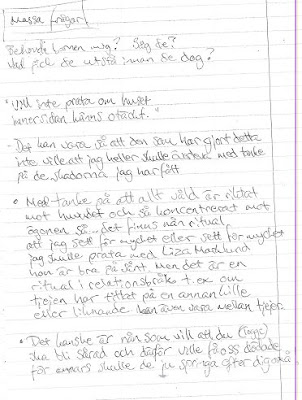 Massa frågor
Behövde barnen mig? Såg de?
Vad fick de utstå innan de dog?
"Vill inte prata om huset
innersidan känns otäckt."
- Det kan vara så att den som har gjort detta
inte ville att jag heller skulle överleva med tanke
på de skadorna jag har fått
• Med tanke på att allt våld är riktat
mot huvudet och så koncentrerat mot
ögonen så... det finns nån ritual
att jag sett för mycket eller sett för mycket
jag skulle prata med Liza Marklund
hon är bra på sånt. Men det är en
ritual i relationsbråk t.ex om
tjejen har tittat på en annan kille
eller liknande kan även vara mellan tjejer.
• Det kanske är nån som vill att du
ska bli sårad och därför ville få oss dödade
för annars skulle de ju springa efter dig